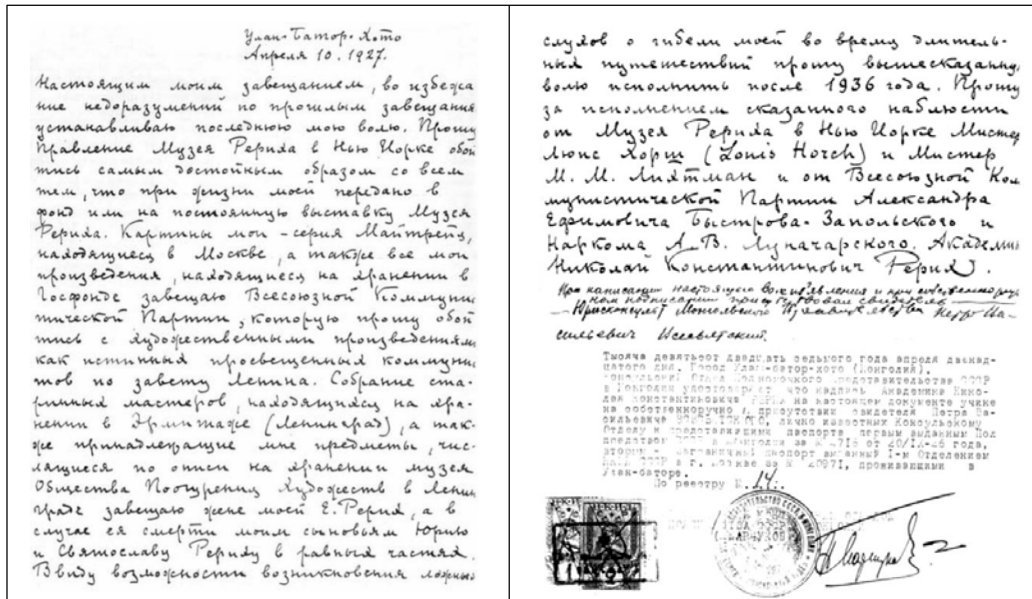 Улан-Батор-Хото
Апреля 10. 1927.
Настоящим моим завещанием, во избежа
ние недоразумений по прошлым завещания
устанавливаю последнюю мою волю. Прошу
Правление Музея Рериха в Нью Иорке обой
тись самым достойным образом со всем
тем, что при жизни моей передано в
фонд или на постоянную выставку Музея
Рериха. Картины мои - серия Майтрейя,
находящиеся в Москве, а также все мои
произведения, находящиеся на хранении в
Госфонде завещаю Всесоюзной Коммуни
тической Партии, которую прошу обой
тись с художественными произведениями
как истинных просвещенных коммуни
тов по завету Ленина. Собрание ста-
ринных мастеров, находящихся на хра-
нении в Эрмитаже (Ленинград), а так
же принадлежащие мне предметы, чис-
лящиеся по описи на хранении музея
Общества Поощрения Художеств в Ленин
граде завещаю жене моей Е. Рерих, а в
случае ея смерти моим сыновьям Юрию
и Святославу Рериху в равных частях.
Ввиду возможности возникновения ложных
слухов о гибели моей во время длитель-
ных путешествий прошу вышесказанную
волю исполнить после 1936 года. Прошу
за исполнением сказанного наблюсти
от Музея Рериха в Нью Иорке Мистер
Люис Хорш (Louis Horch) и Мистер
М. М. Лихтман и от Всесоюзной Ком
мунистической Партии Александра
Ефимовича Быстрова-Запольского и
Наркома А. В. Луначарского. Академик
Николай Константинович Рерих.
При написании настоящего волеизъявления и при собственноруч
ном подписании присутствовал свидетель
Юрисконсульт Монгольского Правительства Петр Ва-
сильевич Всесвятский.
Тысяча девятьсот двадцать седьмого года апреля двенад-
цатого дня. Город Улан-батор-хото (Монголия).
Консульский Отдел Полномочного Представительства СССР
в Монголии удостоверяет, что надпись Академика Нико-
лая Константиновича РЕРИХА на настоящем документе учине
на собственноручно в присутствии свидетеля Петра Ва-
сильевича ВСЕСВЯТСКОГО, лично известных Консульскому
Отделу и представивших паспорта первым выданный Пол
предством СССР в Монголии за № от года,
вторым - Заграничный паспорт выданный 1-м Отделением
СССР в г. Москве за № проживающих в
Улан-баторе.
По реестру №14.